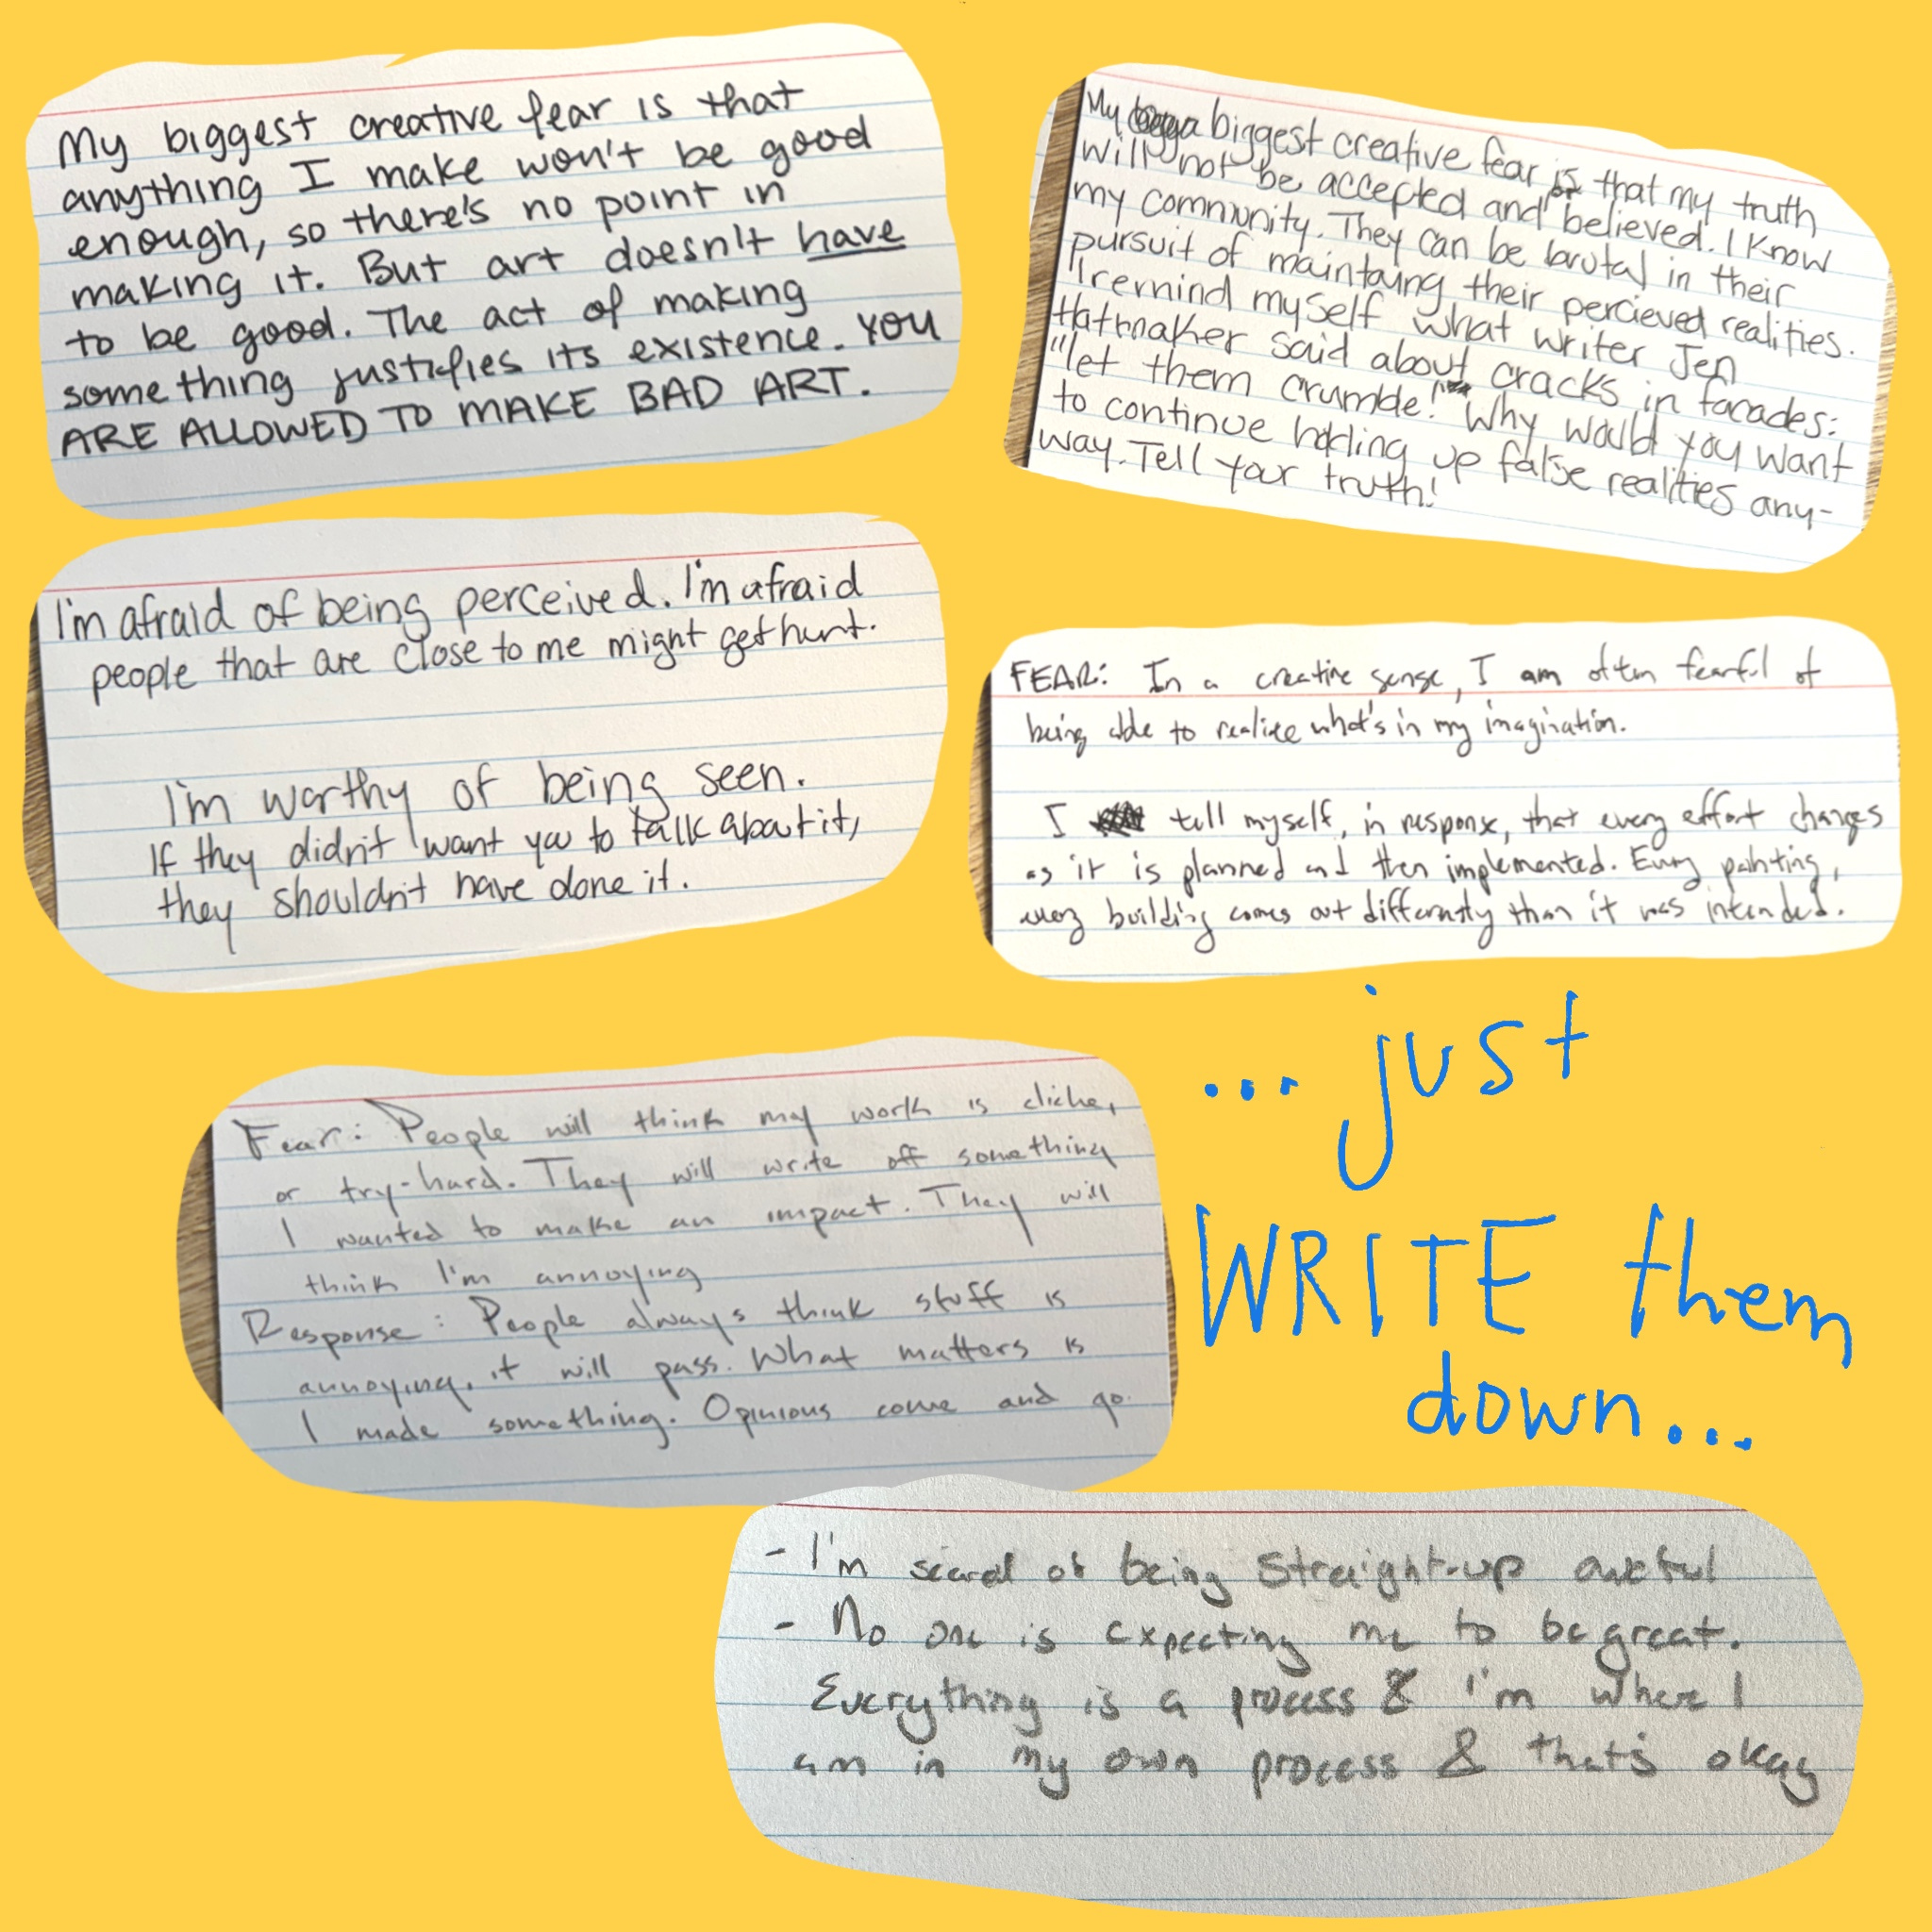 My biggest creative fear is that
anything I make won't be good
enough, so there's no point in
making it. But art doesn't have
to be good. The act of making
something justifies its existence. YOU
ARE ALLOWED TO MAKE BAD ART.
My biggest creative fear is that my truth
will not be accepted and or believed. I know
my community. They can be brutal in their
pursuit of maintaing their percieved realities.
I remind myself what writer Jen
Hatmaker said about cracks in facades:
"let them crumble!" Why would you want
to continue holding up false realities any-
way. Tell your truth!
I'm afraid of being perceived. I'm afraid
people that are close to me might get hurt.
I'm worthy of being seen.
If they didn't want you to talk about it,
they shouldn't have done it.
FEAR: In a creative sense, I am often fearful of
being able to realize what's in my imagination.
I tell myself, in response, that every effort changes
as it is planned and then implemented. Every painting,
every building comes out differently than it was intended.
... just
WRITE them
down...
Fear: People will think my work is cliche,
or try-hard. They will write off something
I wanted to make an impact. They will
think I'm annoying
Response: People always think stuff is
annoying, it will pass. What matters is
I made something. Opinions come and go.
- I'm scared of being straight-up aweful
- No one is expecting me to be great.
Everything is a process & I'm where I
am in my own process & that's okay